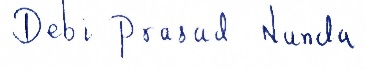 Debi Prasad Nanda